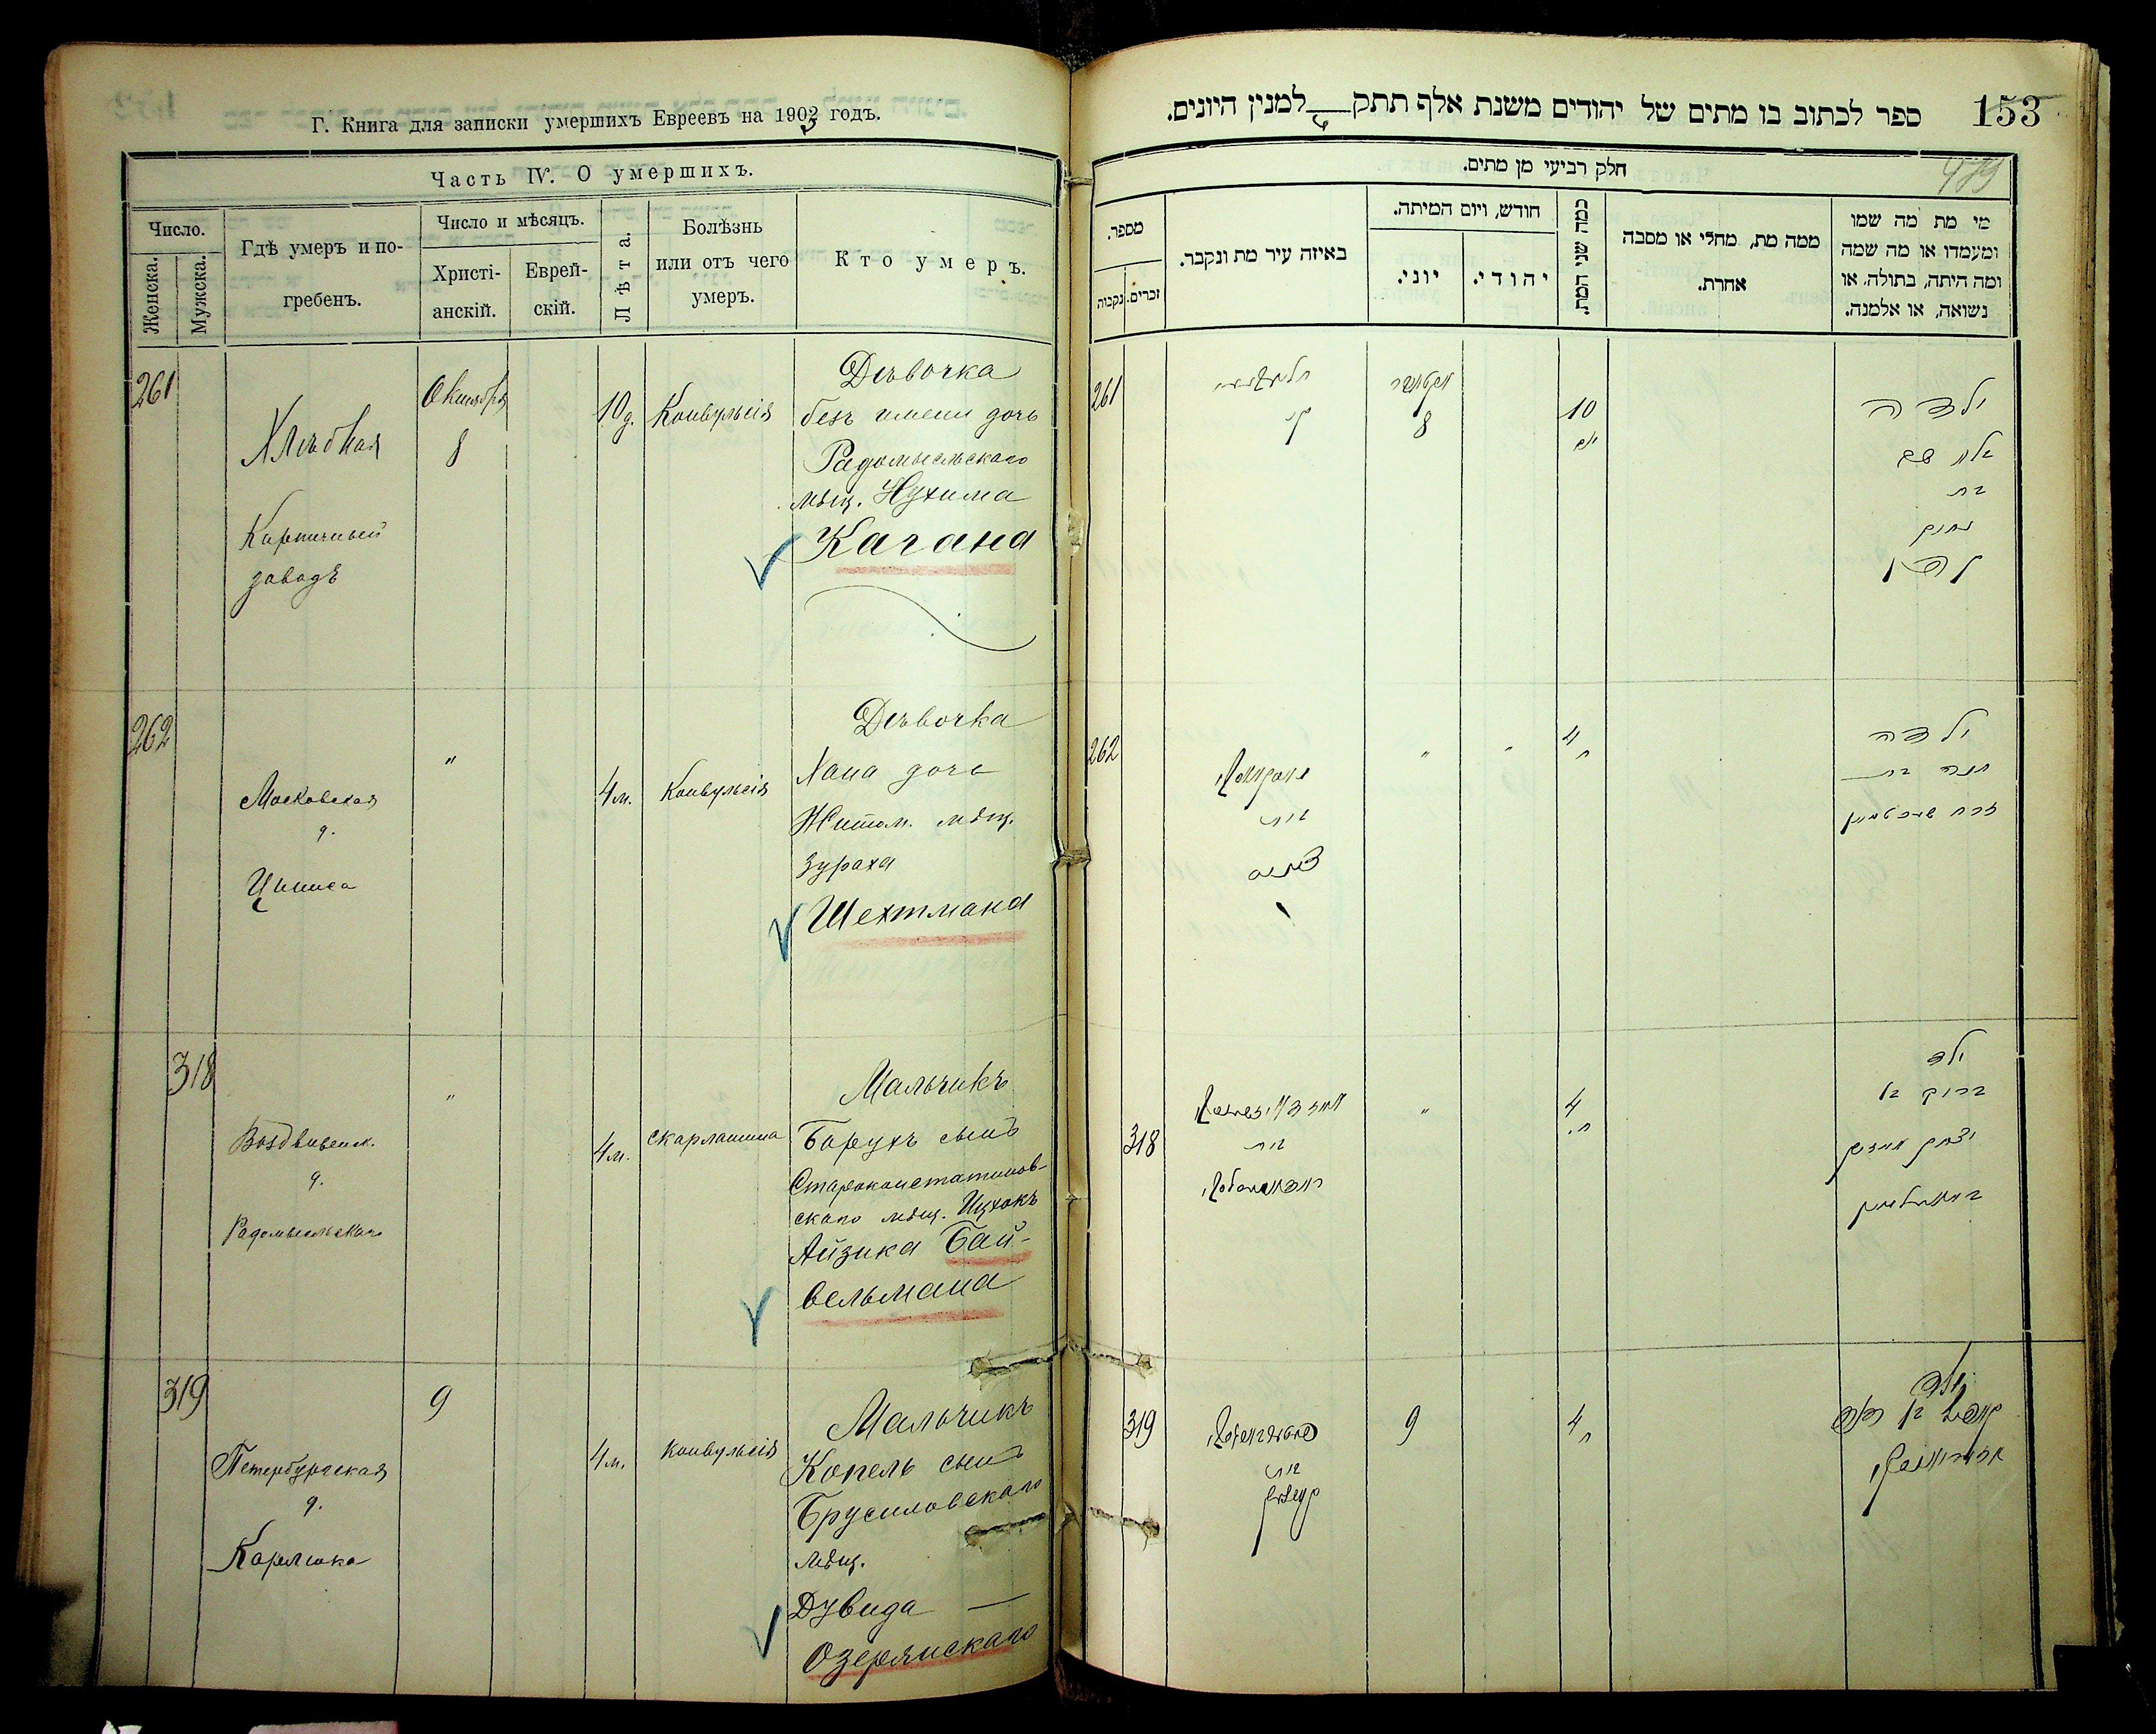 Г. Книга для записки умершихъ Евреевъ на 1903 годъ.
Часть IV. О умершихъ.
Число.
Женска.
Мужска.
Гдѣ умеръ и по-
гребенъ.
Число и мѣсяцъ.
Христі-
анскій.
Еврей-
скій.
Лѣта.
Болѣзнь
или отъ чего
умеръ.
Кто умеръ.
261
Хлѣбная
Кирпичный
заводъ
Октября
8
10 д.
Конвульсія
Дѣвочка
безъ имени дочь
Радомысльскаго
мѣщ. Нухима
Кагана
262
Московская
д.
"
4 м.
Конвульсія
Дѣвочка
Хана дочь
Житом. мѣщ.
Зураха
Шехтмана
318
Воздвиженск.
д.
Радомысльскаго
"
4 м.
скарлатина
Мальчикъ
Барухъ сынъ
Староконстатинов-
скаго мѣщ. Ицхокъ
Айзика Бай-
вельмана
319
Петербургская
д.
Карлика
9
4 м.
конвульсія
Мальчикъ
Копель сынъ
Брусиловскаго
мѣщ.
Дувида —
Озерянскаго
ספר לכתוב בו מתים של יהודים משנת אלף תתק למנין היונים.
153
חלק רביעי מן מתים.
מספר.
זכרים.
נקבות
באיזה עיר מת ונקבר.
חודש, ויום המיתה.
יוני.
יהודי.
כמה שני המת.
ממה מת, מחלי או מסבה
אחרת.
מי מת מה שמו
ומעמדו או מה שמה
ומה היתה, בתולה, או
נשואה, או אלמנה.
261
אקטאבר
8
10
ילדה
בלא שם
בת
נחום
כהן
262
בית
"
"
4
ח
ילדה
חנה בת
זרח שעכטמאן
318
בית
"
4
ח.
ילד
ברוך בן
יצחק אייזיק
319
בית
9
4
ח
ילד
קאפיל בן דוד